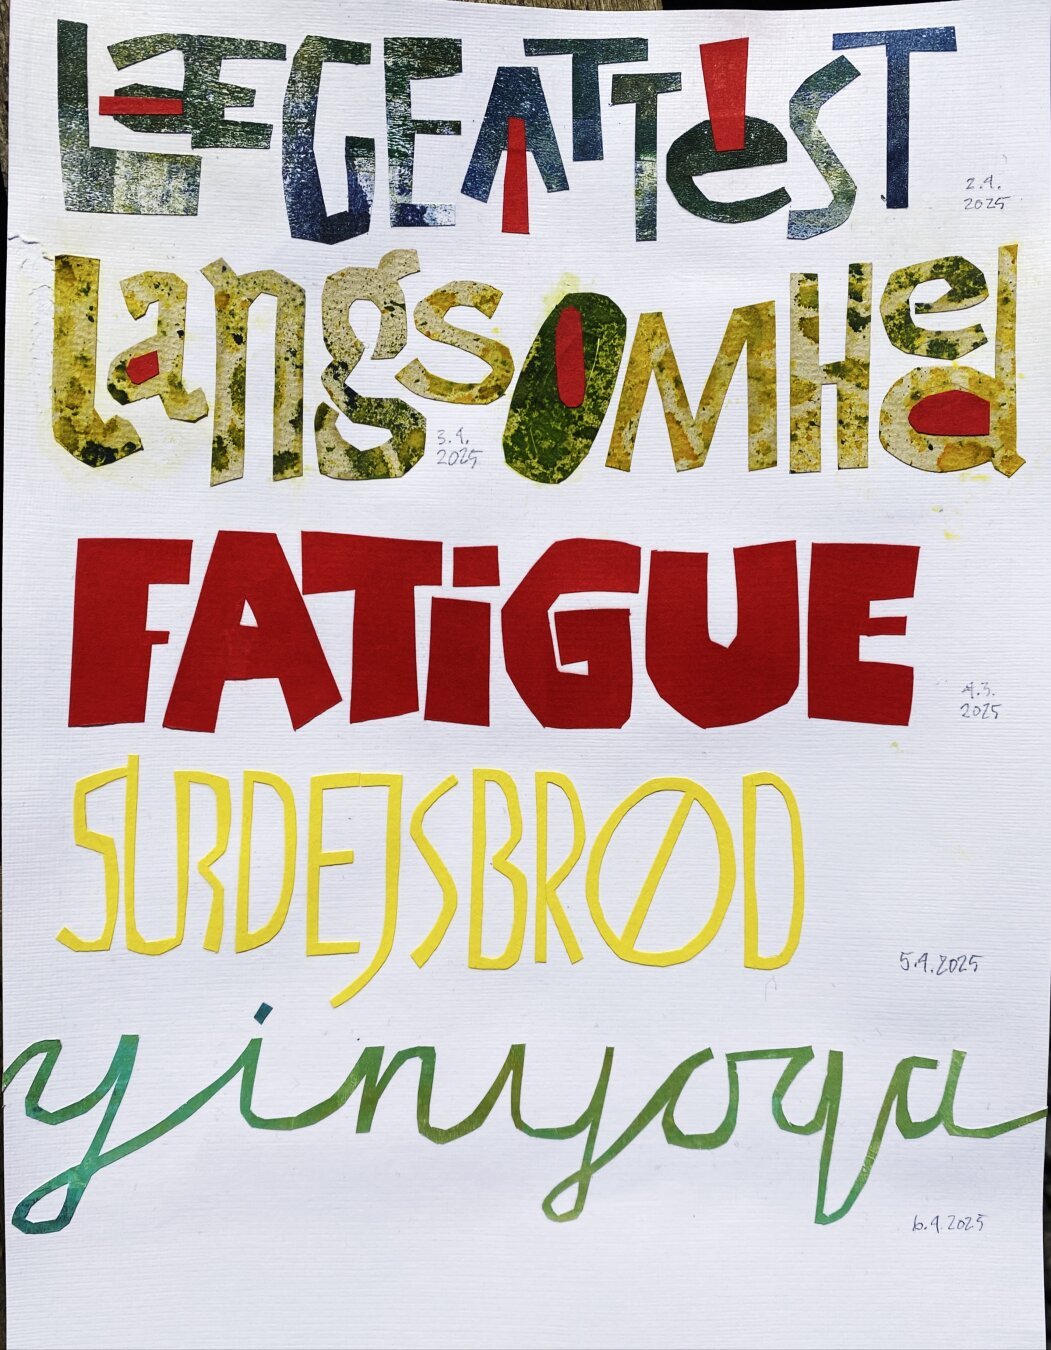 LÆGEATTEST
2.4.
2025
LangsOMHed
3.4.
2025
FATiGUE
4.3.
2025
SURDEJSBRØD
5.4.2025
yinyoga
6.4.2025